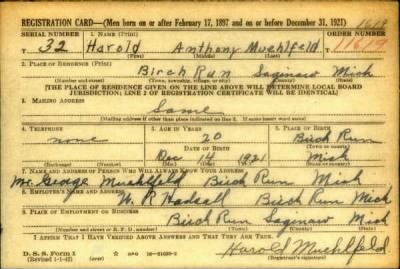 REGISTRATION CARD—(Men born on or after February 17, 1897 and on or before December 31, 1921)
SERIAL NUMBER 1. NAME (Print) ORDER NUMBER
T 32 Harold Anthony Muehlfeld 11619
(First) (Middle) (Last)
2. PLACE OF RESIDENCE (Print)
Birch Run Saginaw Mich
(Number and street) (Town, township, village, or city) (County) (State)
[THE PLACE OF RESIDENCE GIVEN ON THE LINE ABOVE WILL DETERMINE LOCAL BOARD
JURISDICTION; LINE 2 OF REGISTRATION CERTIFICATE WILL BE IDENTICAL]
3. MAILING ADDRESS
Same
[Mailing address if other than place indicated on line 2. If same insert word same]
4. TELEPHONE 5. AGE IN YEARS 6. PLACE OF BIRTH
none 20 Birch Run
DATE OF BIRTH (Town or county)
Dec 14 1921 Mich
(Exchange) (Number) (Mo.) (Day) (Yr.) (State or country)
7. NAME AND ADDRESS OF PERSON WHO WILL ALWAYS KNOW YOUR ADDRESS
Mr. George Muehlfeld Birch Run Mich
8. EMPLOYER'S NAME AND ADDRESS
W. R. Birch Run Mich
9. PLACE OF EMPLOYMENT OR BUSINESS
Birch Run Saginaw Mich
(Number and street or R. F. D. number) (Town) (County) (State)
I AFFIRM THAT I HAVE VERIFIED ABOVE ANSWERS AND THAT THEY ARE TRUE.
D. S. S. Form 1 Harold Muehlfeld
(Revised 1-1-42) (over) (Registrant's signature)